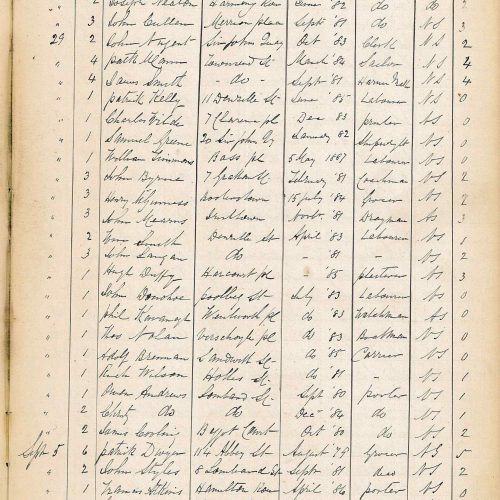 " 2 Joseph Harmony Row June '82 do do 2
" 3 John Cullen Merrion place Sept '81 do NS 3
29 2 John Nugent Sir John Quay Oct '83 Clerk NS 2
" 4 Townsend St March '84 Sailor NS 4
" 4 James Smith do Sept '81 NS 4
" 1 patrick Kelly 11 Denzille St June '85 Labourer NS 0
" 1 Charles Wilde 7 Clarence pl Dec '83 printer NS 0
" 1 Samuel Greene 20 Sir John Qy January '82 NS 0
" 1 William Simmons Bass pl 5 May 1881 Labourer NS 0
" 3 John Byrne 7 Grahams Ct February '81 Coachman NS 2
" 3 Henry McGuinness 15 July '84 Grocer NS 2
" 3 John Mearns Novbr '81 Drayman NS 3
" 2 Wm Smith Denzille St April '83 Labourer NS 1
" 3 John Langan do - '81 - NS 2
" 1 Hugh Duffy Harcourt pl '85 plasterer NS 3
" 1 John Donohoe St July '83 Labourer NS 0
" 1 phil Kavanagh Wentworth pl do '83 Watchman NS 0
" 1 Thos Nolan Verschoyle pl do '83 NS 0
" 1 Adolf Brennan Sandwith St do '85 Carrier NS 0
" 1 Rich Wilson Holles St do '81 NS 1
" 1 Owen Andrews Lombard St Sept '80 porter NS 1
" 2 Christ do do Dec '84 do NS 1
" 2 James Court Oct '80 do NS 2
Sept 5 6 patrick Dwyer 114 Abbey St August '78 Grocer NS 5
" 2 John Styles 8 Lombard St Sept '81 dead NS 2
" 1 Francis Hamilton Row April '86 porter NS 0